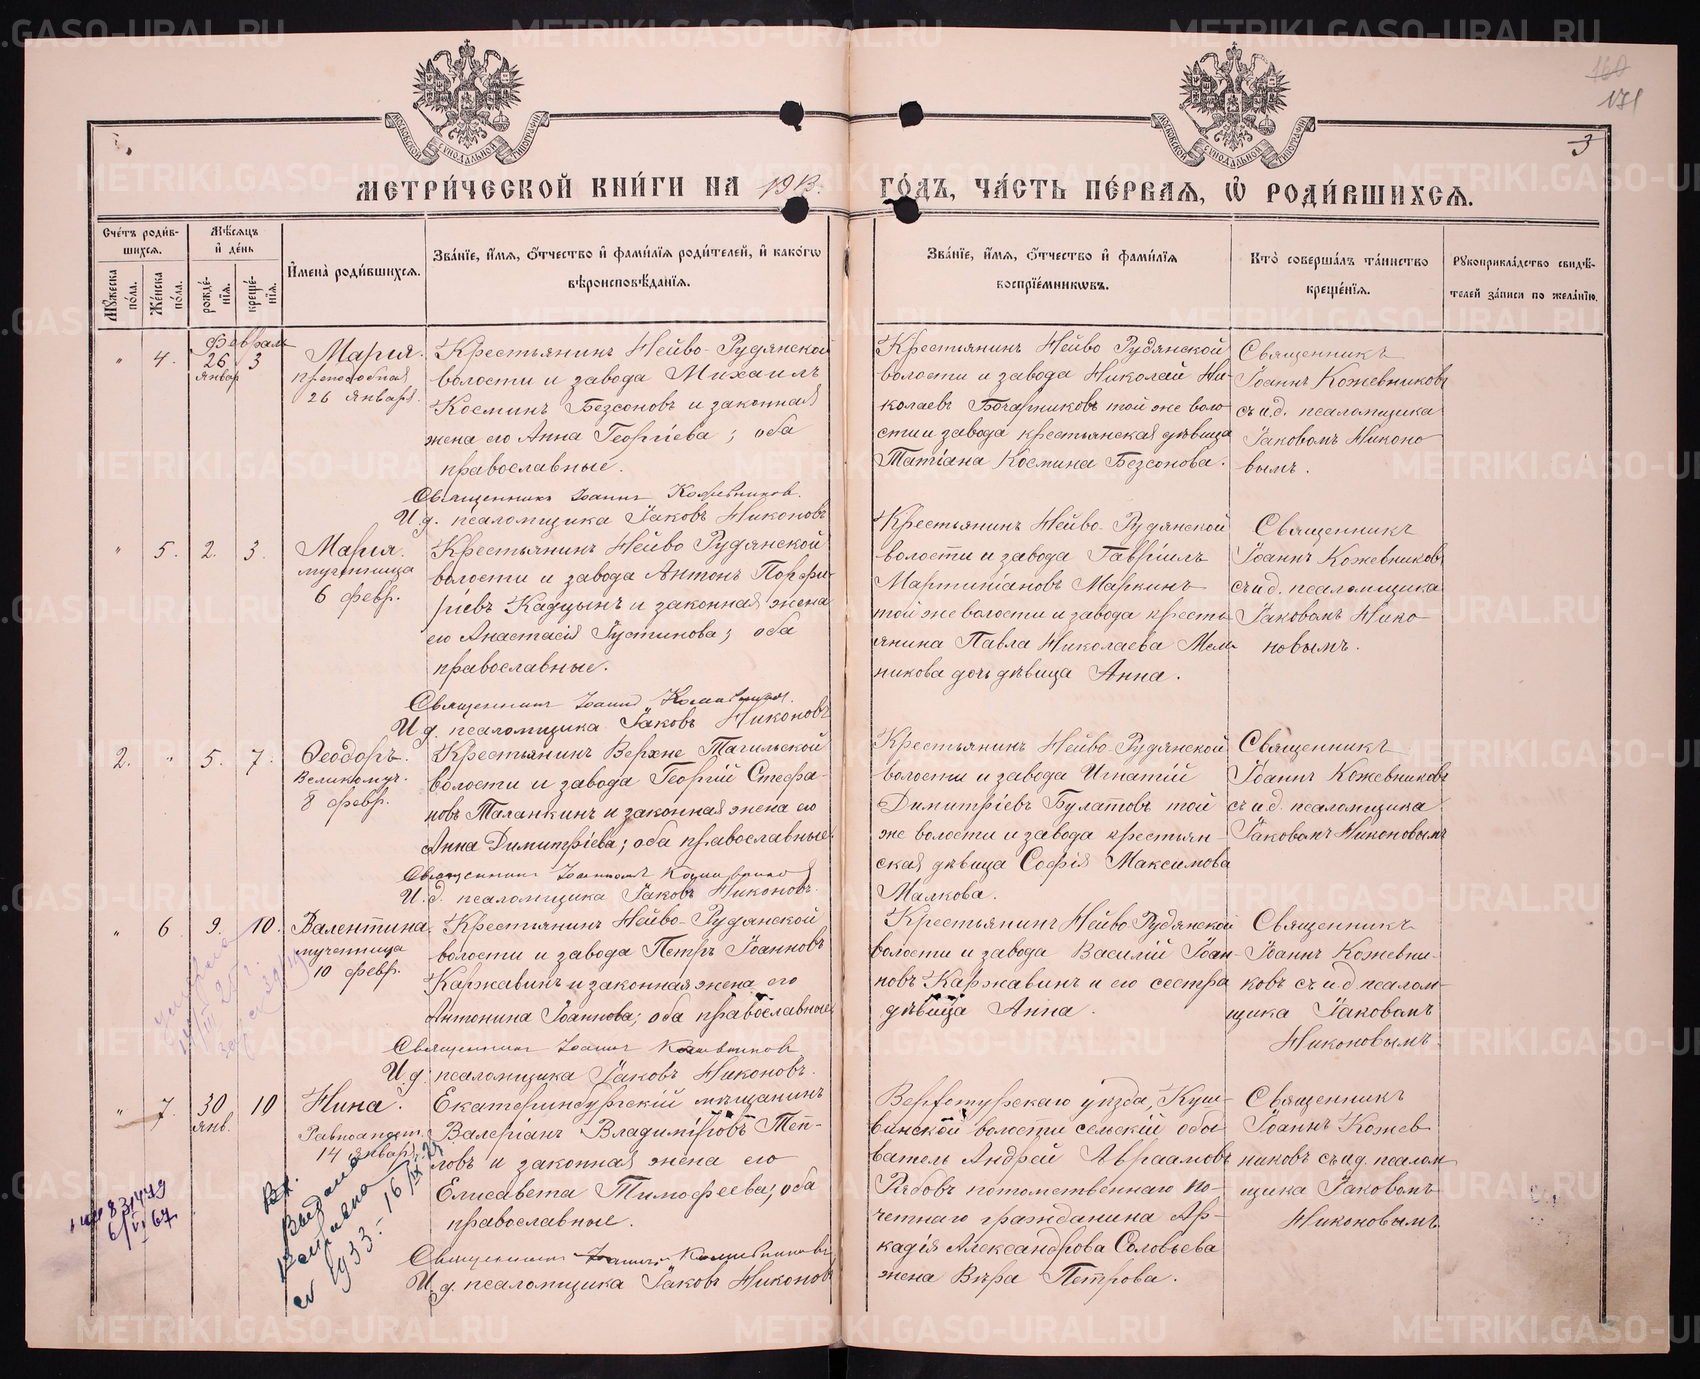 160
171
3
МОСКОВСКОЙ СѴНОДАЛЬНОЙ ТИПОГРАФІИ
МОСКОВСКОЙ СѴНОДАЛЬНОЙ ТИПОГРАФІИ
МЕТРИ́ЧЕСКОЙ КНИ́ГИ НА 1913.
ГО́ДЪ, ЧА́СТЬ ПЕ́РВАЯ, Ѡ҆ РОДИ́ВШИХСЯ.
Сче́тъ роди́в-
шихся.
Мꙋ́жеска по́ла.
Же́нска по́ла.
Мѣ́сяцъ
и҆ де́нь
рожде́-
нїя.
креще́-
нїя.
И҆мена̀ роди́вшихся.
Зва́нїе, и҆́мя, ѻ҆́тчество и҆ фами́лїя роди́телей, и҆ како́гѡ
вѣроисповѣ́данїя.
Зва́нїе, и҆́мя, ѻ҆́тчество и҆ фами́лїя
воспрїе́мникѡвъ.
Кто̀ соверша́лъ та́инство
креще́нїя.
Рꙋкоприкла́дство свидѣ́-
телей за́писи по жела́нїю.
Февраль
" 4. 26 3
январ
Марія.
преподобная
26 января.
Крестьянинъ Нейво-Рудянской
волости и завода Михаилъ
Косминъ Безсоновъ и законная
жена его Анна Георгіева; оба
православные.
Священникъ Іоаннъ Кожевников.
И. д. псаломщика Іаковъ Никоновъ
Крестьянинъ Нейво Рудянской
волости и завода Николай Ни-
колаевъ Бочарниковъ той же воло
сти и завода крестьянская дѣвица
Татіана Космина Безсонова.
Священникъ
Іоаннъ Кожевниковъ
съ и.д. псаломщика
Іаковомъ Никоно
вымъ.
" 5. 2. 3.
Марія.
мученица
6 февр.
Крестьянинъ Нейво Рудянской
волости и завода Антонъ Порфи-
ріевъ Кадцынъ и законная жена
его Анастасія Іустинова; оба
православные.
Священникъ Іоаннъ Кожевников.
И. д. псаломщика Іаковъ Никоновъ
Крестьянинъ Нейво-Рудянской
волости и завода Гавріилъ
Мартиніановъ Маркинъ
той же волости и завода кресть-
янина Павла Николаева Мель-
никова дочь дѣвица Анна.
Священникъ
Іоаннъ Кожевниковъ
съ и д. псаломщика
Іаковомъ Нико
новымъ.
2. " 5. 7.
Ѳеодоръ.
Великомуч.
8 февр.
Крестьянинъ Верхне Тагильской
волости и завода Георгій Стефа-
новъ Таланкинъ и законная жена его
Анна Димитріева; оба православные.
И. д. псаломщика Іаковъ Никоновъ.
Крестьянинъ Нейво-Рудянской
волости и завода Игнатій
Димитріевъ Булатовъ той
же волости и завода крестьян-
ская дѣвица Софія Максимова
Малкова.
Священникъ
Іоаннъ Кожевниковъ
съ и.д. псаломщика
Іаковомъ Никоновымъ
" 6 9. 10.
Валентина.
мученица
10 февр.
Крестьянинъ Нейво-Рудянской
волости и завода Петръ Іоанновъ
Каржавинъ и законная жена его
Антонина Іоаннова; оба православные.
Священникъ Іоаннъ Кожевников
И. д. псаломщика Іаковъ Никоновъ.
Крестьянинъ Нейво Рудянской
волости и завода Василій Іоан-
новъ Каржавинъ и его сестра
дѣвица Анна.
Священникъ
Іоаннъ Кожевни-
ковъ съ и д псалом-
щика Іаковомъ
Никоновымъ.
" 7. 30 10
янв.
Нина.
Равноапост.
14 января.
Екатеринбургскій мѣщанинъ
Валеріанъ Владиміровъ Теп-
ловъ и законная жена его
Елисавета Тимофеева; оба
православные.
Священникъ Іоаннъ Кожевниковъ
И. д. псаломщика Іаковъ Никоновъ
Верхотурскаго уѣзда, Куш-
винской волости сельскій обы
ватель Андрей Авраамовъ
Рябовъ потомственнаго по-
четнаго гражданина Ар-
кадія Александрова Соловьева
жена Вѣра Петрова.
Священникъ
Іоаннъ Кожев
никовъ съ и д. псалом
щика Іаковомъ
Никоновымъ
6/VI 67
Выдана
1933.- 16/IX
METRIKI.GASO-URAL.RU